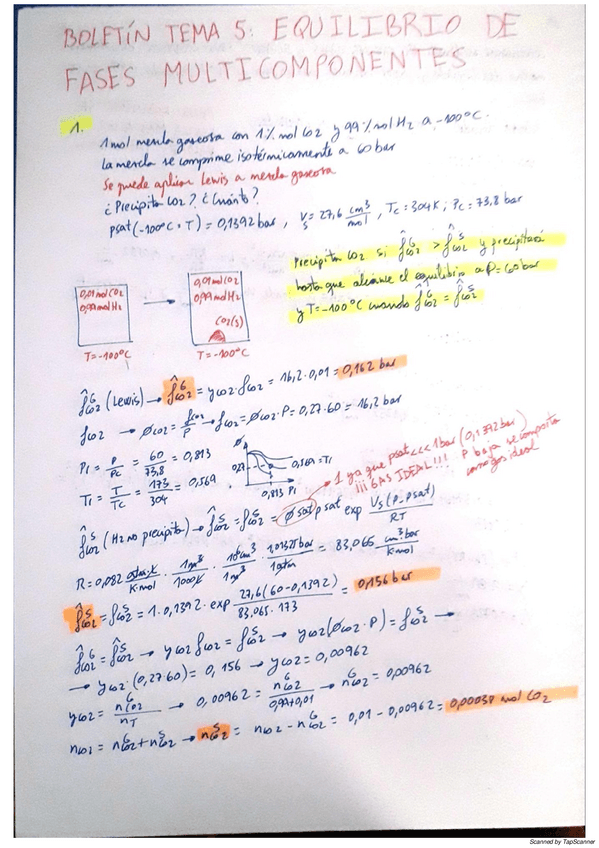 BOLETÍN TEMA 5: EQUILIBRIO DE
FASES MULTICOMPONENTES
1.
1 mol mezcla gaseosa con 1% mol CO2 y 99% mol H2 a -100ºC.
La mezcla se comprime isotérmicamente a 60 bar
Se puede aplicar Lewis a mezcla gaseosa
¿Precipita CO2? ¿Cuánto?
psat(-100ºC = T) = 0,1392 bar, Vs = 27,6 cm³/mol, Tc = 304K; Pc = 73,8 bar
Precipita CO2 si f̂CO2^G > f̂CO2^S y precipitará
hasta que alcance el equilibrio a P=60bar
y T=-100ºC cuando f̂CO2^G = f̂CO2^S
0,01 mol CO2
0,99 mol H2
T=-100ºC
0,01 mol CO2
0,99 mol H2
CO2(s)
T=-100ºC
f̂CO2^G (Lewis) → f̂CO2^G = yCO2·fCO2 = 16,2·0,01 = 0,162 bar
fCO2 → ØCO2 = fCO2/P → fCO2 = ØCO2·P = 0,27·60 = 16,2 bar
Pr = P/Pc = 60/73,8 = 0,813
Tr = T/Tc = 173/304 = 0,569
Ø
0,27
0,569 = Tr
0,813 Pr
1 ya que psat <<< 1 bar (0,1392 bar)
¡¡¡GAS IDEAL!!! P baja se comporta
como gas ideal
f̂CO2^S (H2 no precipita) → f̂CO2^S = fCO2^S = Øsat psat exp Vs(P-Psat)/RT
R = 0,082 atm·L/K·mol · 1m³/1000L · 10⁶cm³/1m³ · 1,01325bar/1atm = 83,065 cm³·bar/K·mol
f̂CO2^S = fCO2^S = 1·0,1392·exp 27,6(60-0,1392)/83,065·173 = 0,156 bar
f̂CO2^G = f̂CO2^S → yCO2 fCO2 = fCO2^S → yCO2(ØCO2·P) = fCO2^S →
→ yCO2·(0,27·60) = 0,156 → yCO2 = 0,00962
yCO2 = nCO2^G/nT → 0,00962 = nCO2^G/0,99+0,01 → nCO2^G = 0,00962
nCO2 = nCO2^G + nCO2^S → nCO2^S = nCO2 - nCO2^G = 0,01 - 0,00962 = 0,00038 mol CO2
Scanned by TapScanner